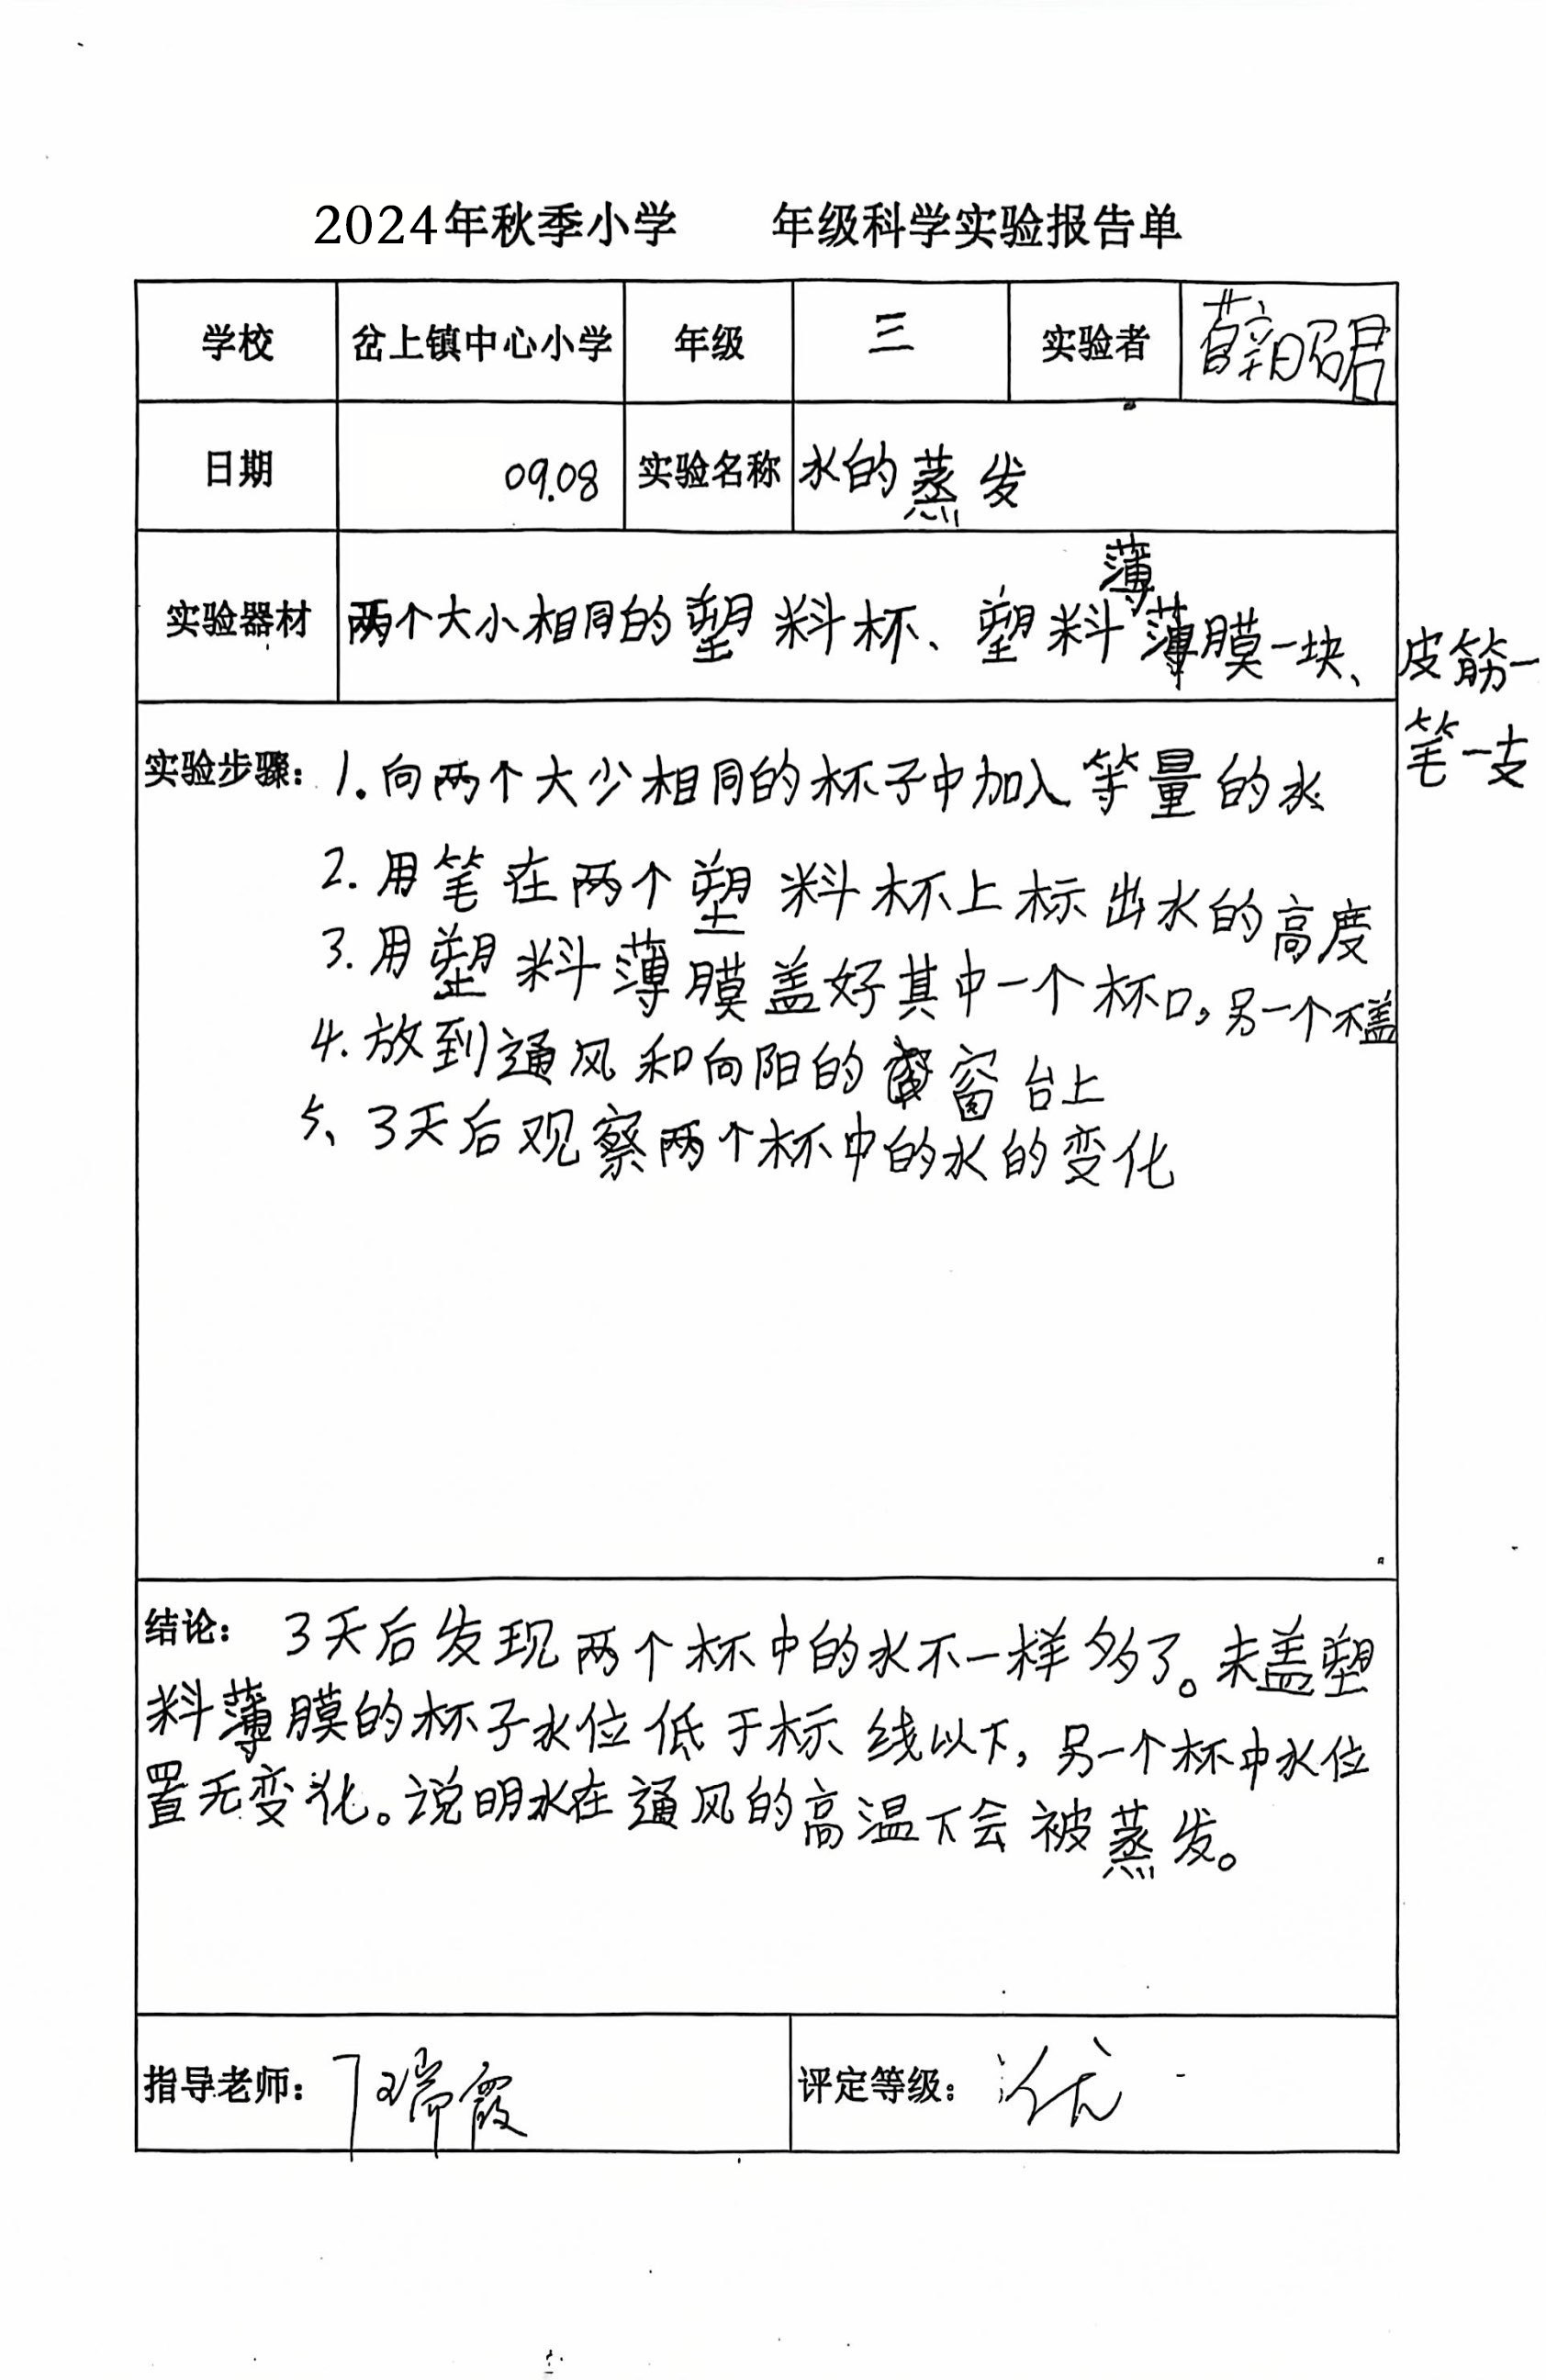 2024年秋季小学 年级科学实验报告单
学校 岔上镇中心小学 年级 三 实验者 薛昭君
日期 09.08 实验名称 水的蒸发
薄
实验器材 两个大小相同的塑料杯、塑料薄膜一块、皮筋一
笔一支
实验步骤: 1.向两个大少相同的杯子中加入等量的水
2.用笔在两个塑料杯上标出水的高度
3.用塑料薄膜盖好其中一个杯口,另一个不盖
4.放到通风和向阳的窗台上
5、3天后观察两个杯中的水的变化
结论: 3天后发现两个杯中的水不一样多了。未盖塑
料薄膜的杯子水位低于标线以下,另一个杯中水位
置无变化。说明水在通风的高温下会被蒸发。
指导老师: 丁瑞霞 评定等级: 优